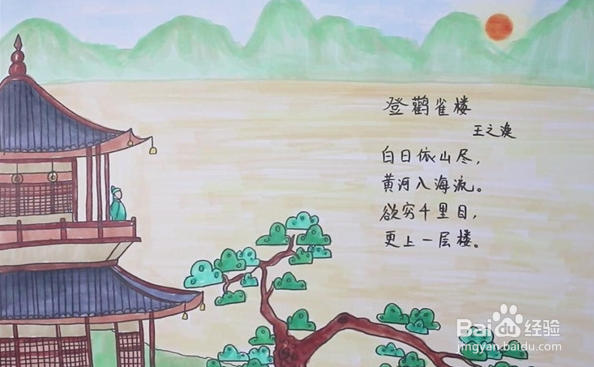 登鹳雀楼
王之涣
白日依山尽，
黄河入海流。
欲穷千里目，
更上一层楼。
Baidu经验
jingyan.baidu.com